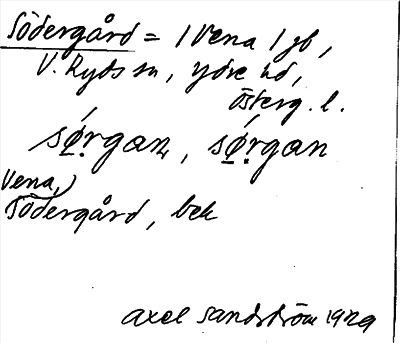 Södergård = / Vena / gb,
V. Ryds sn, Ydre hd,
Österg. l.
sǿ̣rgaṇ, sǿ̣rgan
Vena,)
Södergård, bek
Axel Sandström 1929